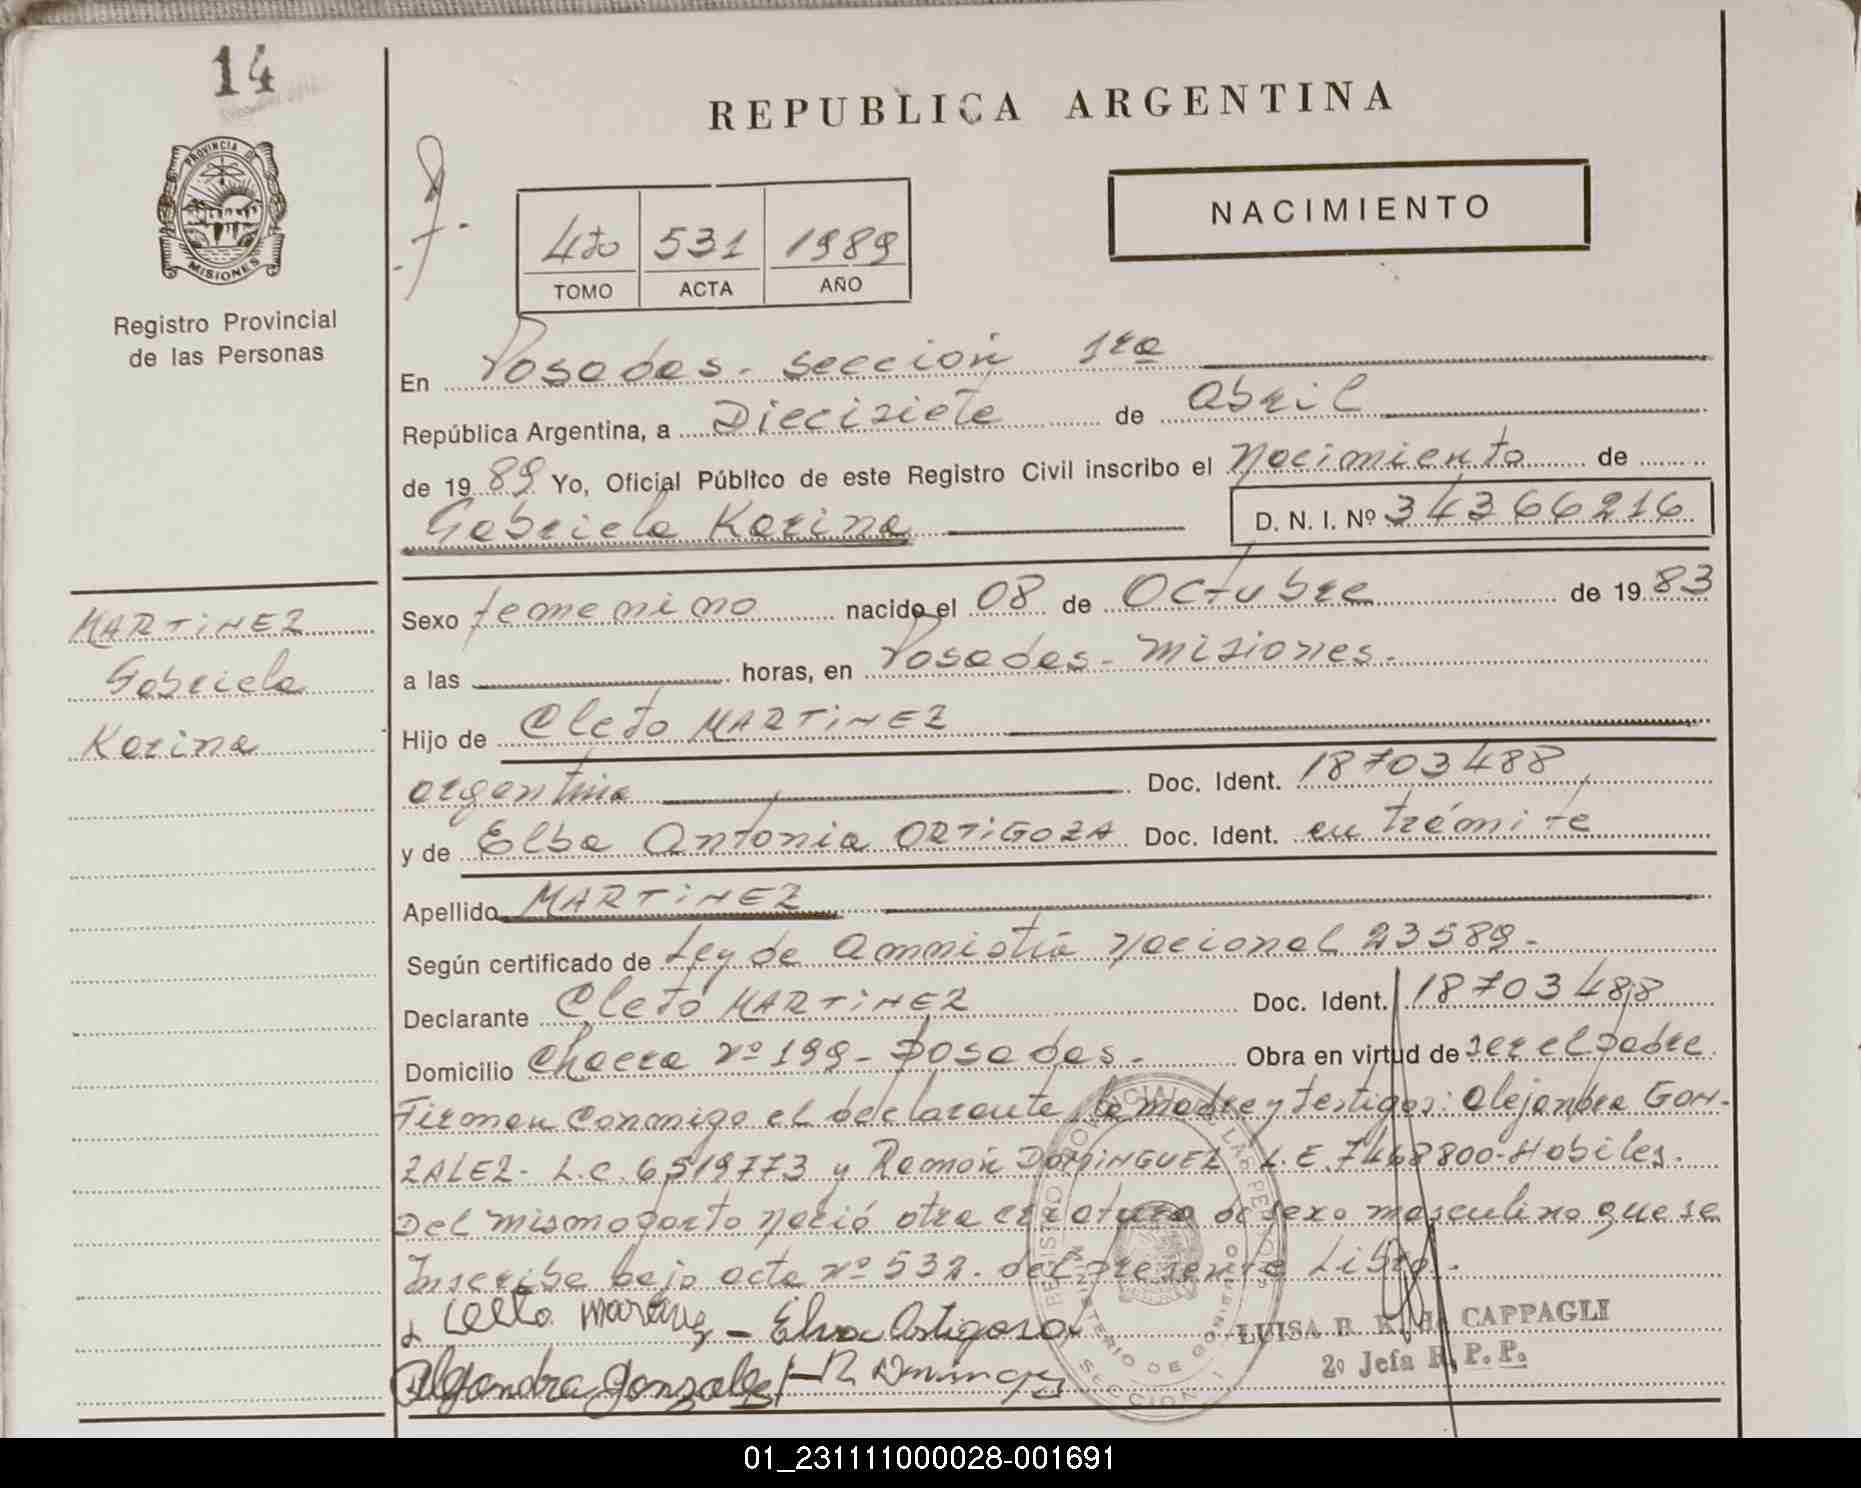 14
REPUBLICA ARGENTINA
PROVINCIA DE
MISIONES
Registro Provincial
de las Personas
NACIMIENTO
4to 531 1989
TOMO ACTA AÑO
En Posadas - Sección 1ra
República Argentina, a Diecisiete de Abril
de 1989 Yo, Oficial Público de este Registro Civil inscribo el Nacimiento de
Gabriela Karina D. N. I. Nº 34366216
MARTINEZ
Gabriela
Karina
Sexo femenino nacido el 08 de Octubre de 1983
a las horas, en Posadas - Misiones.
Hijo de Cleto MARTINEZ
argentina Doc. Ident. 18703488
y de Elba Antonia ORTIGOZA Doc. Ident. en trámite
Apellido MARTINEZ
Según certificado de Ley de Amnistía Nacional 23589.
Declarante Cleto MARTINEZ Doc. Ident. 18703488
Domicilio Chacra nº 199 - Posadas. Obra en virtud de ser el padre
Firman conmigo el declarante, la madre y testigos: Alejandra GON-
ZALEZ - L.C. 6519773 y Ramón DOMINGUEZ L.E. 7468800 - Hábiles.
Del mismo parto nació otra criatura de sexo masculino que se
Inscribe bajo acta nº 532. del presente Libro.
Elva Ortigosa
Alejandra Gonzalez
REGISTRO PROVINCIAL DE LAS PERSONAS
MINISTERIO DE GOBIERNO
SECCION 1
CAPPAGLI
2º Jefa R. P. P.
01_231111000028-001691